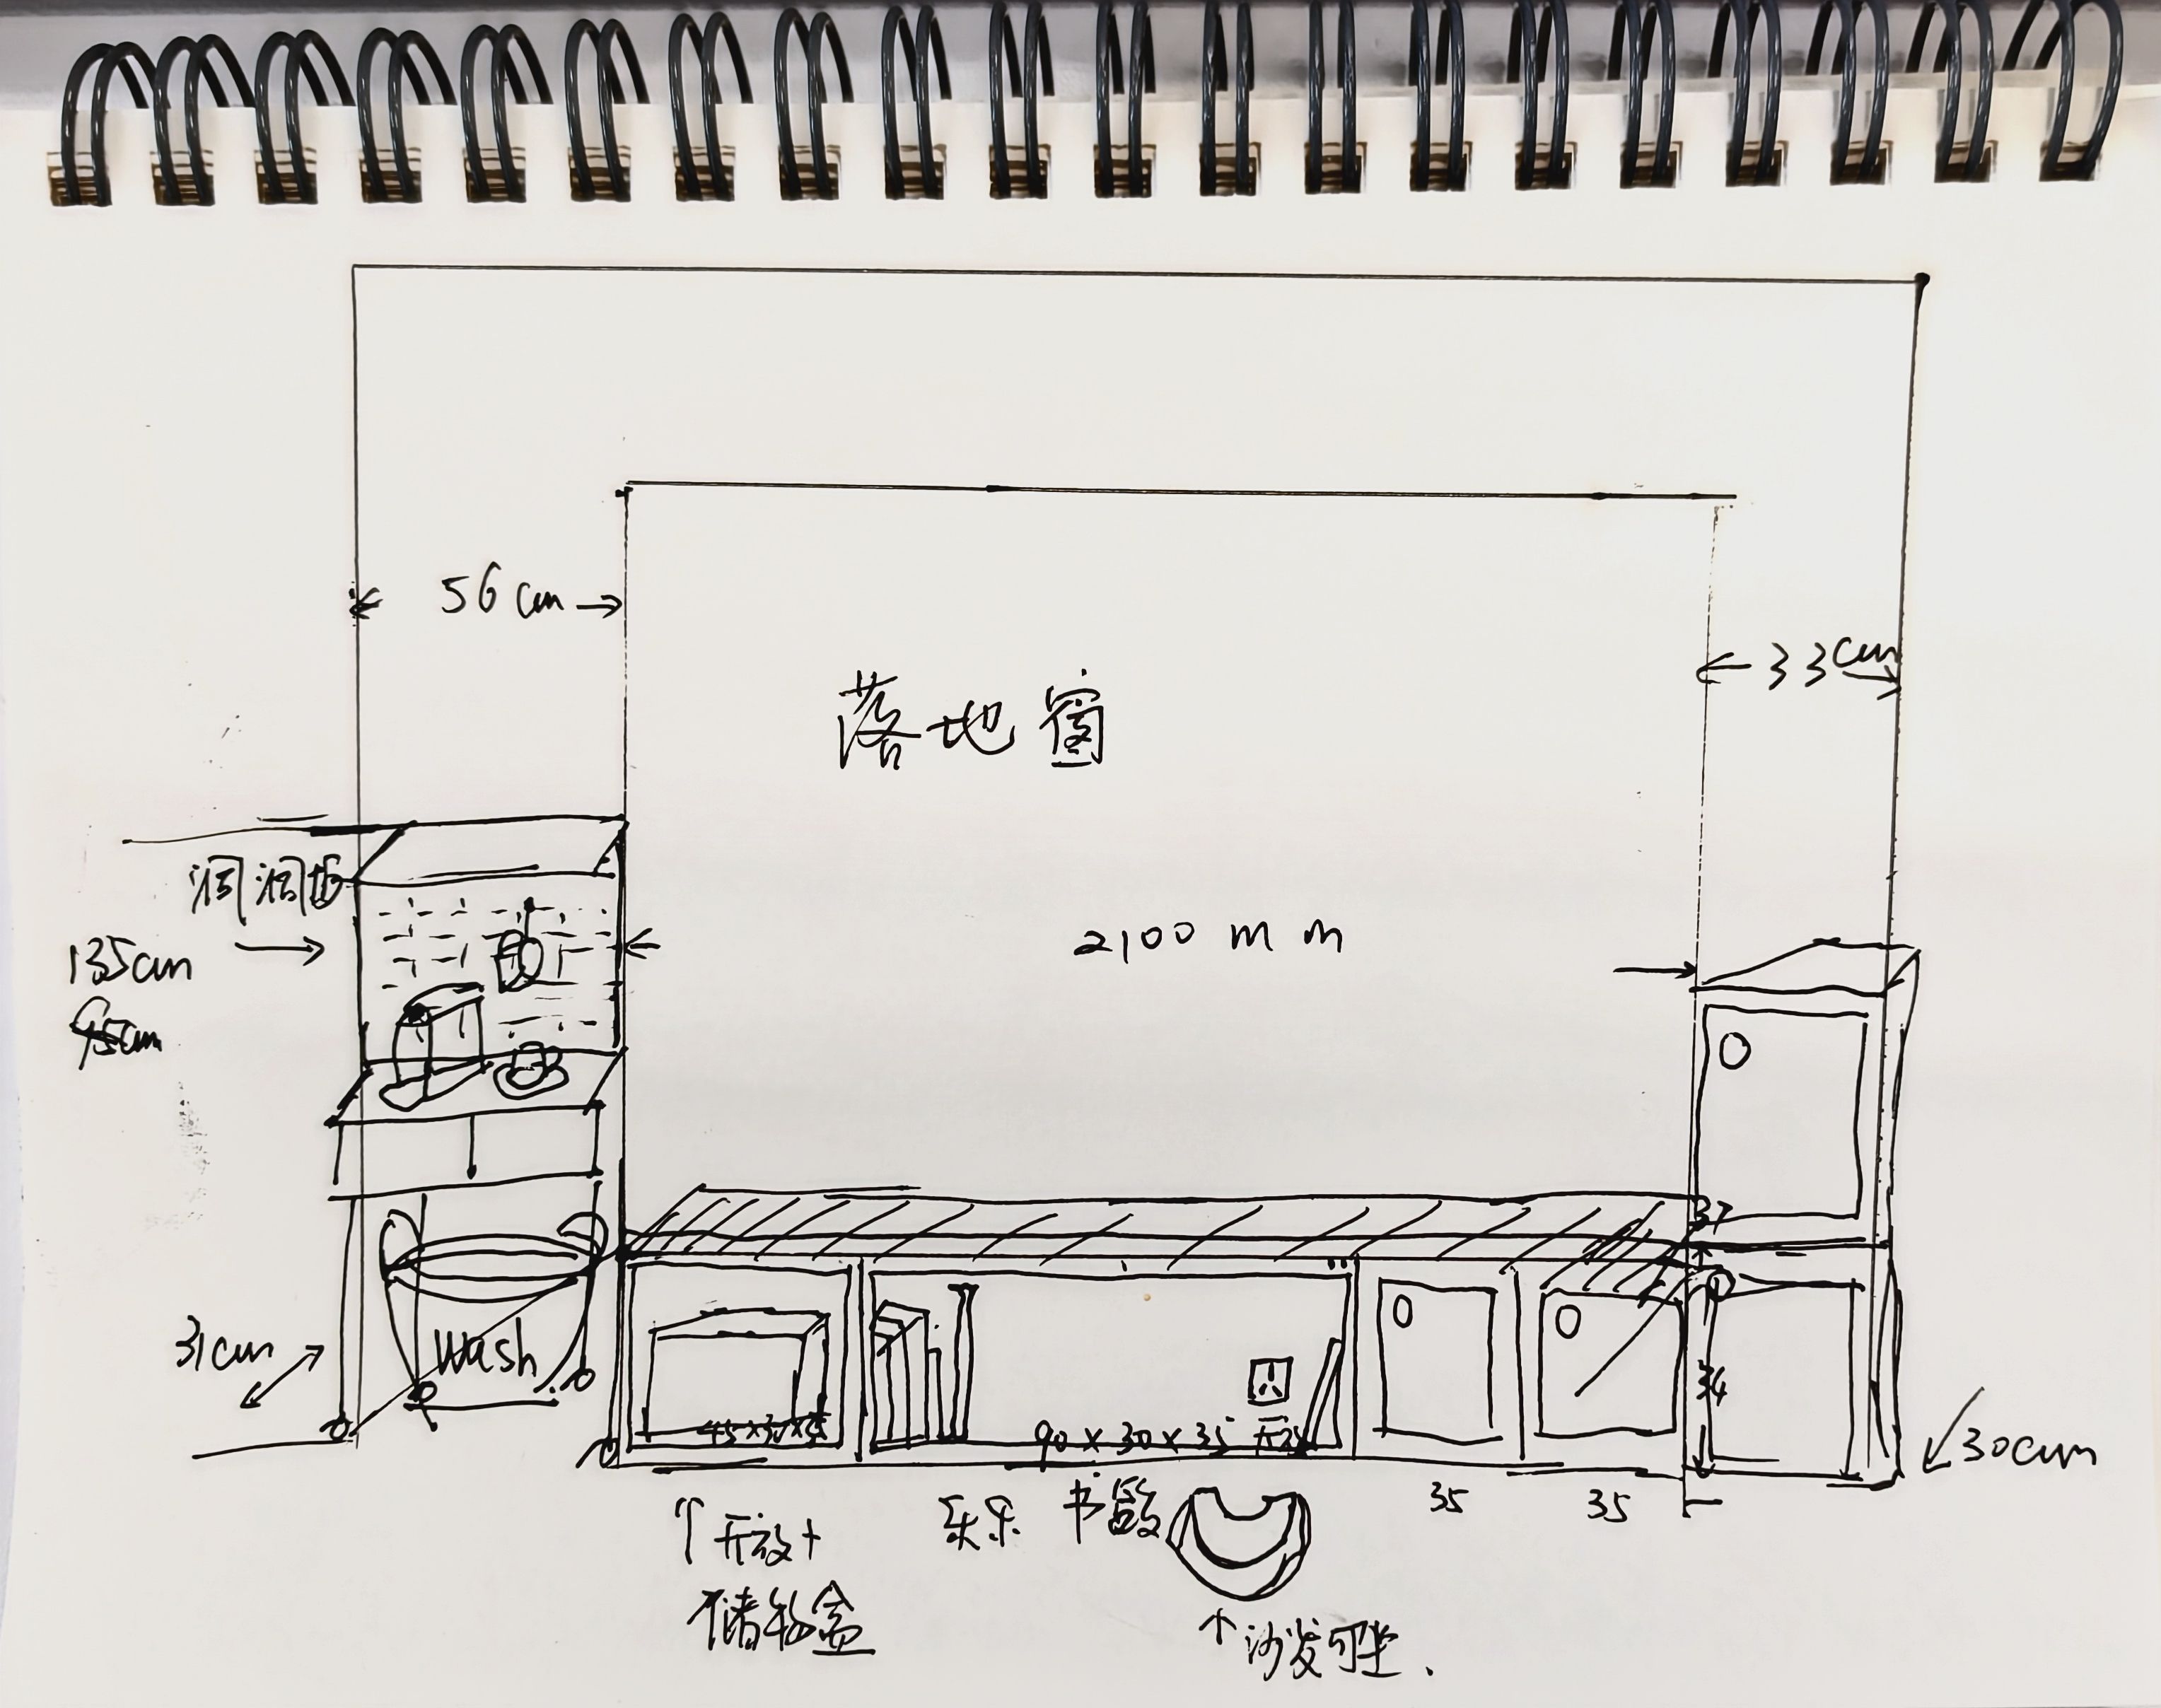 56cm
33cm
落地窗
洞洞板
2100mm
135cm
95cm
37
31cm
Wash
34
45×30×35
90×30×35 开放
30cm
35
35
乐乐 书籍
↑开放+
储物盒
↑沙发可坐.